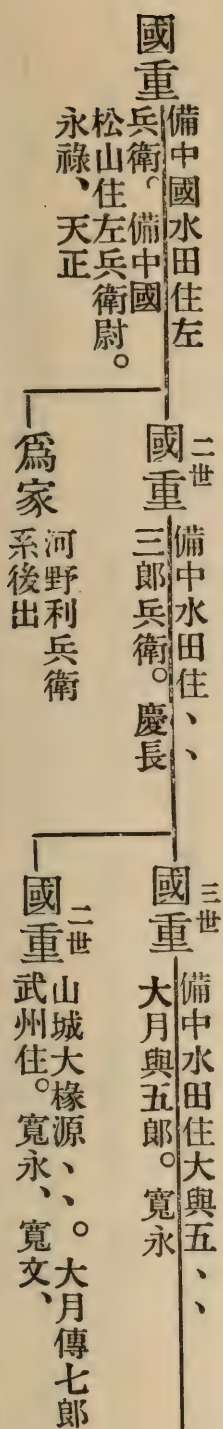 國重
備中國水田住左
兵衛。備中國
松山住左兵衛尉。
永祿、天正
二世
國重
備中水田住、、
三郎兵衛。慶長
爲家
河野利兵衛
系後出
三世
國重
備中水田住大與五、、
大月與五郎。寬永
二世
國重
山城大椽源、、。大月傳七郎
武州住。寬永、寬文、